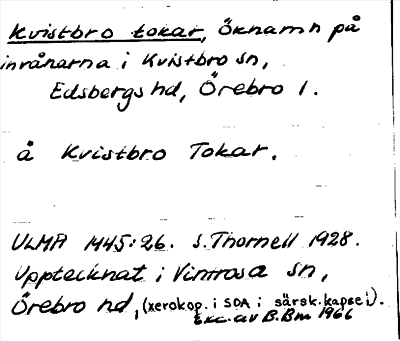 Kvistbro tokar, Öknamn på
inrånarna i Kvistbro sn,
Edsbergs hd, Örebro l.
å Kvistbro Tokar.
ULMA 1445:26. S. Thornell 1928.
Upptecknat i Vintrosa sn,
Örebro hd, (xerokop. i SOA i särsk. kapsel).
Exc. av B.Bm 1966